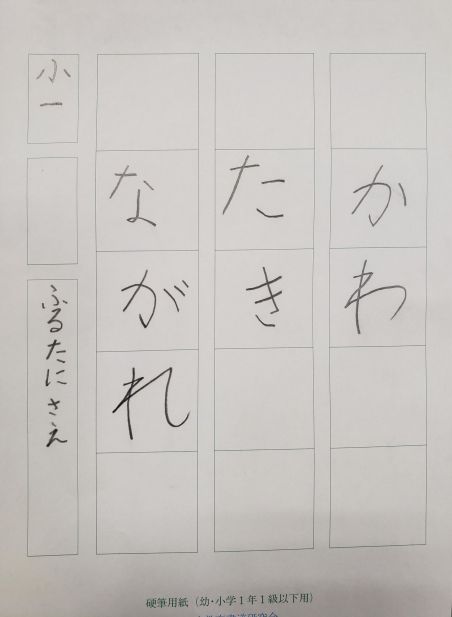 かわ
たき
ながれ
小一
ふるたにさえ
硬筆用紙（幼・小学1年1級以下用）